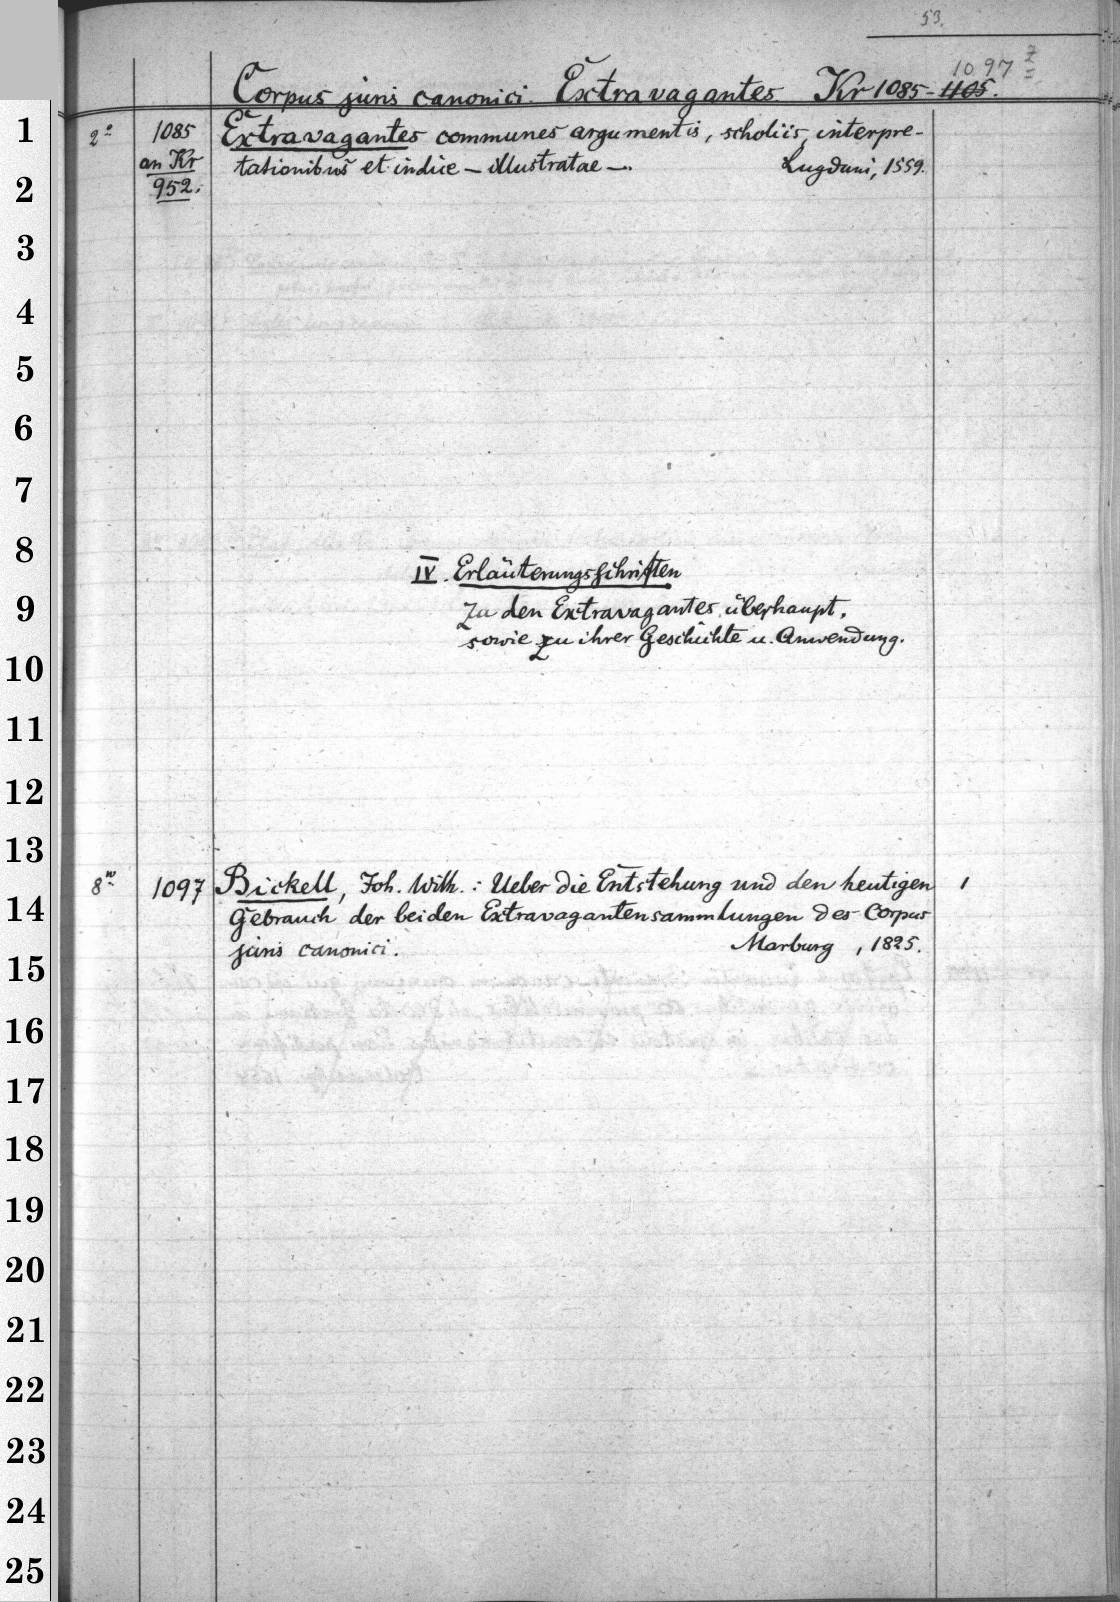 53.
1097
Corpus juris canonici. Extravagantes Kr 1085-1105.
1
2° 1085 Extravagantes communes argumentis, scholiis, interpre-
an Kr tationibus et indice — illustratae —. Lugduni, 1559.
2
952.
3
4
5
6
7
8
IV. Erläuterungsschriften
9
zu den Extravagantes überhaupt,
sowie zu ihrer Geschichte u. Anwendung.
10
11
12
13
8° 1097 Bickell, Joh. Wilh.: Ueber die Entstehung und den heutigen 1
14
Gebrauch der beiden Extravagantensammlungen des Corpus
juris canonici. Marburg, 1825.
15
16
17
18
19
20
21
22
23
24
25